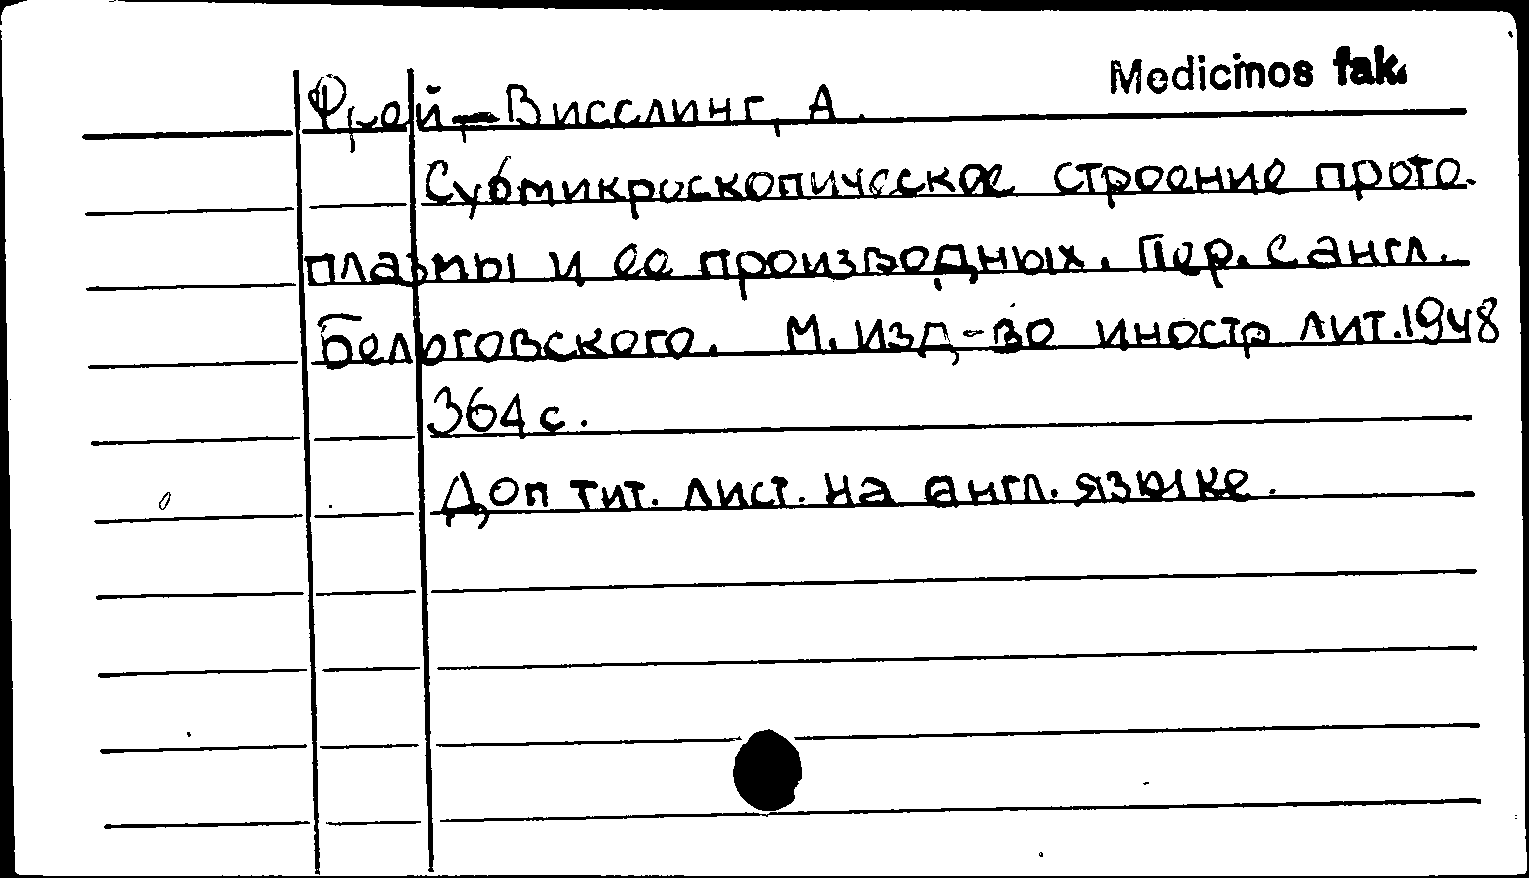 Medicinos fak.
Фрей-Висслинг, А.
Субмикроскопическое строение прото-
плазмы и ее производных. Пер. с англ.
Белоговского. М. Изд-во иностр лит. 1948
364 с.
Доп тит. лист. на англ. языке.